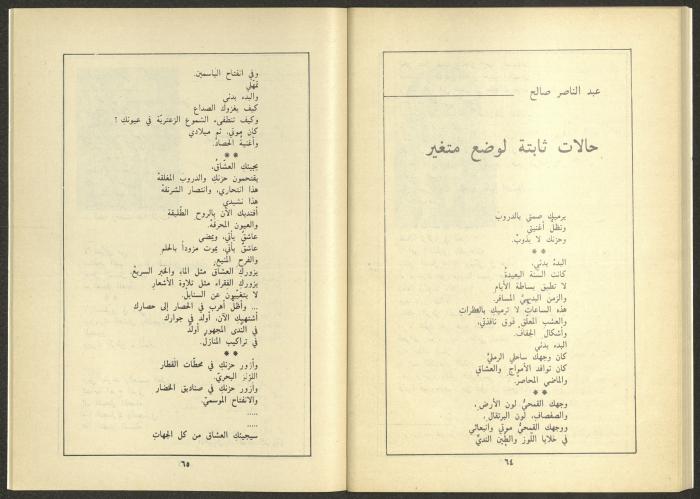 عبد الناصر صالح
حالات ثابتة لوضع متغير
يرميكِ صمتي بالدروب
وتظلُّ أغنيتي
وحزنكِ لا يذوبْ.
**
البدءُ بدني،
كانت السنة البعيدةُ
لا تطبق بساطة الأيام
والزمن البديهيَّ المسافر.
هذه الساعاتُ لا ترميكِ بالنظرات
والعشب المعلّقِ فوق نافذتي،
وأشكال الجفافْ.
البدء بدني
كان وجهك ساحلي الرمليَّ
كان نوافذ الأمواج والعشاقِ
والماضي المحاصرْ.
**
وجهك القمحيُّ لون الأرض،
والصفصاف، لون البرتقال،
ووجهك القمحيُّ موتي وانبعاثي
في خلايا اللّوز والطّين النديّ
٦٤
وفي انفتاح الياسمين.
تمهّلي
والبدء بدني
كيف يغزوك الصداع
وكيف تنطفىء الشموع الزعتريّة في عيونك ؟
كان موتي، ثم ميلادي
وأغنيةُ الحصادْ.
**
يجيئكِ العشّاقُ،
يقتحمون حزنكِ والدروبَ المغلقهْ
هذا انتحاري، وانتصار الشرنقهْ
هذا نشيدي
أفتديك الآن بالروح الطّليقة
والعيون المحرقهْ.
عاشقٌ يأتي، ويمضي
عاشقٌ يأتي، يموت مزوداً بالحلم
والفرح المنيعِ
يزوركِ العشاق مثل الماء والخبز السريعْ.
يزوركِ الفقراء مثل تلاوة الأشعار
لا يتغيّبون عن السنابل.
... وأظلُّ أهرب في الحصار إلى حصارك
أشتهيكِ الآن، أولدُ في جوارك
في النّدى المجهور أولدُ
في تراكيب المنازل.
**
وأزور حزنكِ في محطّات القطار
اللؤلؤ البحريّ.
وأزور حزنكِ في صناديق الخضار
والانفتاح الموسميّ.
.....
.....
سيجيئكِ العشاق من كل الجهاتِ
٦٥